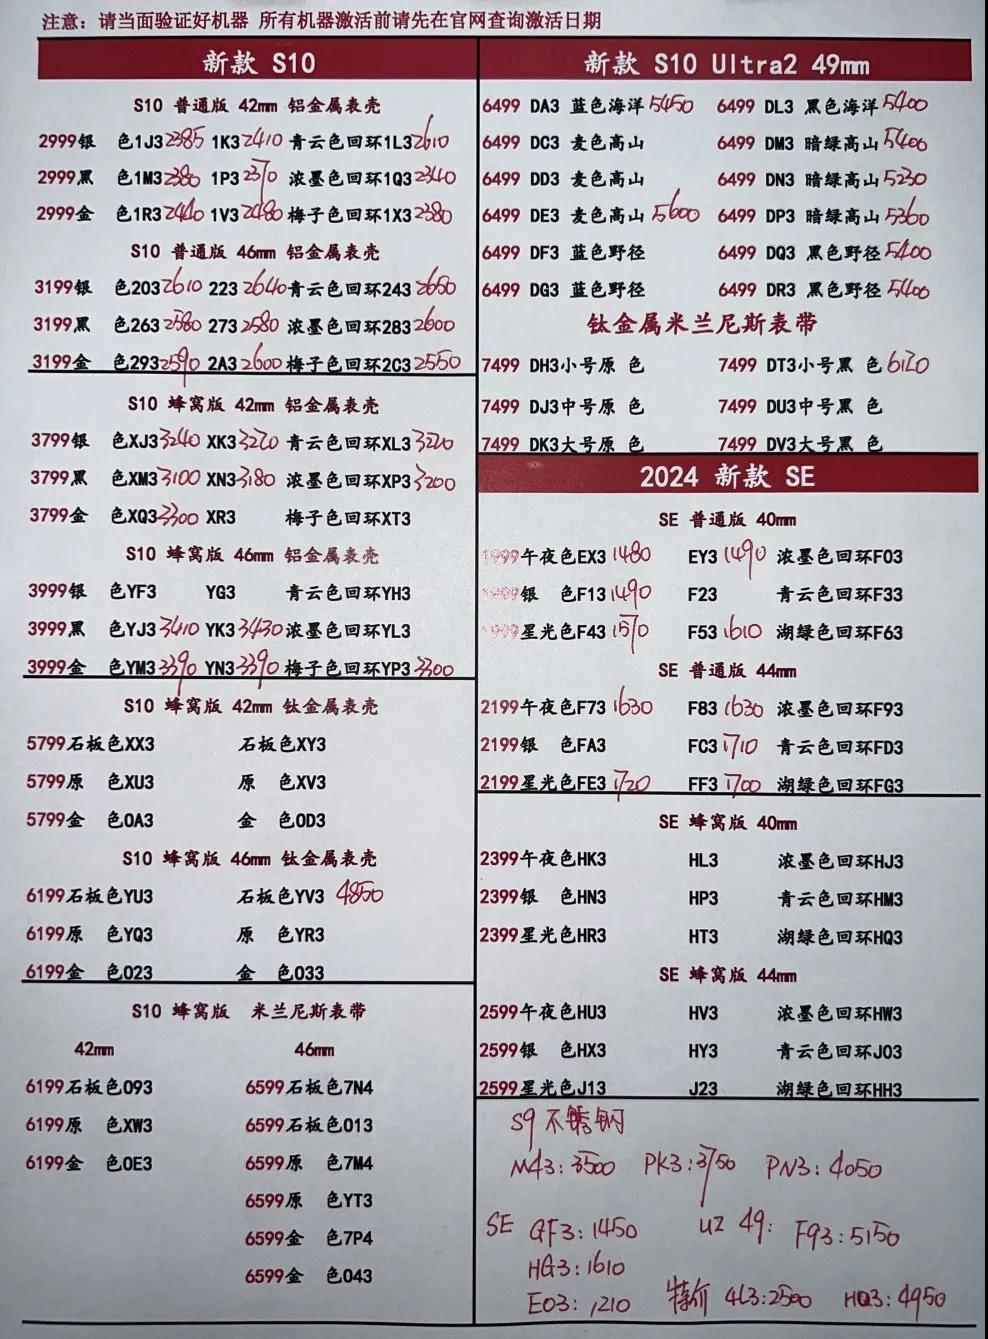 注意：请当面验证好机器 所有机器激活前请先在官网查询激活日期
新款 S10
S10 普通版 42mm 铝金属表壳
2999银 色1J3 2385 1K3 2410 青云色回环1L3 2610
2999黑 色1M3 2380 1P3 2370 浓墨色回环1Q3 2340
2999金 色1R3 2440 1V3 2480 梅子色回环1X3 2380
S10 普通版 46mm 铝金属表壳
3199银 色203 2610 223 2640 青云色回环243 2650
3199黑 色263 2580 273 2580 浓墨色回环283 2600
3199金 色293 2590 2A3 2600 梅子色回环2C3 2550
S10 蜂窝版 42mm 铝金属表壳
3799银 色XJ3 3240 XK3 3220 青云色回环XL3 3220
3799黑 色XM3 3100 XN3 3180 浓墨色回环XP3 3200
3799金 色XQ3 3300 XR3 梅子色回环XT3
S10 蜂窝版 46mm 铝金属表壳
3999银 色YF3 YG3 青云色回环YH3
3999黑 色YJ3 3410 YK3 3430 浓墨色回环YL3
3999金 色YM3 3390 YN3 3390 梅子色回环YP3 3300
S10 蜂窝版 42mm 钛金属表壳
5799石板色XX3 石板色XY3
5799原 色XU3 原 色XV3
5799金 色0A3 金 色0D3
S10 蜂窝版 46mm 钛金属表壳
6199石板色YU3 石板色YV3 4850
6199原 色YQ3 原 色YR3
6199金 色023 金 色033
S10 蜂窝版 米兰尼斯表带
42mm 46mm
6199石板色093 6599石板色7N4
6199原 色XW3 6599石板色013
6199金 色0E3 6599原 色7M4
6599原 色YT3
6599金 色7P4
6599金 色043
新款 S10 Ultra2 49mm
6499 DA3 蓝色海洋 5450 6499 DL3 黑色海洋 5400
6499 DC3 麦色高山 6499 DM3 暗绿高山 5400
6499 DD3 麦色高山 6499 DN3 暗绿高山 5230
6499 DE3 麦色高山 5600 6499 DP3 暗绿高山 5360
6499 DF3 蓝色野径 6499 DQ3 黑色野径 5400
6499 DG3 蓝色野径 6499 DR3 黑色野径 5400
钛金属米兰尼斯表带
7499 DH3小号原 色 7499 DT3小号黑 色 6120
7499 DJ3中号原 色 7499 DU3中号黑 色
7499 DK3大号原 色 7499 DV3大号黑 色
2024 新款 SE
SE 普通版 40mm
1999午夜色EX3 1480 EY3 1490 浓墨色回环F03
1999银 色F13 1490 F23 青云色回环F33
1999星光色F43 1570 F53 1610 湖绿色回环F63
SE 普通版 44mm
2199午夜色F73 1630 F83 1630 浓墨色回环F93
2199银 色FA3 FC3 1710 青云色回环FD3
2199星光色FE3 1720 FF3 1700 湖绿色回环FG3
SE 蜂窝版 40mm
2399午夜色HK3 HL3 浓墨色回环HJ3
2399银 色HN3 HP3 青云色回环HM3
2399星光色HR3 HT3 湖绿色回环HQ3
SE 蜂窝版 44mm
2599午夜色HU3 HV3 浓墨色回环HW3
2599银 色HX3 HY3 青云色回环J03
2599星光色J13 J23 湖绿色回环HH3
S9 不锈钢
M43: 3500 PK3: 3750 PN3: 4050
SE GF3: 1450 U2 49: F93: 5150
HG3: 1610
E03: 1210 特价 4L3: 2500 HQ3: 4950